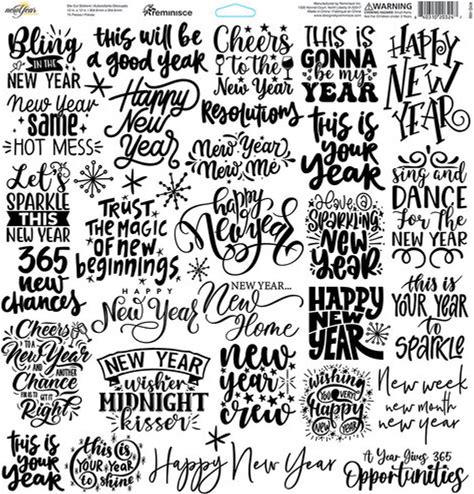 new year
Die Cut Stickers
reminisce
Manufactured by Reminisce Inc.
WARNING
Bling
IN THE
NEW YEAR
this will be
a good YEAR
Cheers
to the
New Year
THIS IS
GONNA
be my
YEAR
HAPPY
NEW
YEAR
New Year
same
HOT MESS
Happy
New
Year
Resolutions
this is
your
year
New Year
New Me
Let's
SPARKLE
THIS
NEW YEAR
TRUST
THE MAGIC
OF NEW
beginnings.
happy
New year
Have a
Sparkling
New
year
Sing and
DANCE
FOR THE
NEW YEAR
365
new
chances
HAPPY
New Year
NEW YEAR...
New
Home
HAPPY
NEW
YEAR
this is
YOUR YEAR
to
SPARKLE
Cheers
TO A
New Year
AND
ANOTHER
Chance
FOR US TO
GET IT
Right
NEW YEAR
wishes
MIDNIGHT
kisser
new
year
crew
Wishing
YOU
VERY
Happy
New Year
New week
new month
new year
this is
your
year
this is
YOUR YEAR
to shine
Happy New Year
A Year Gives 365
Opportunities